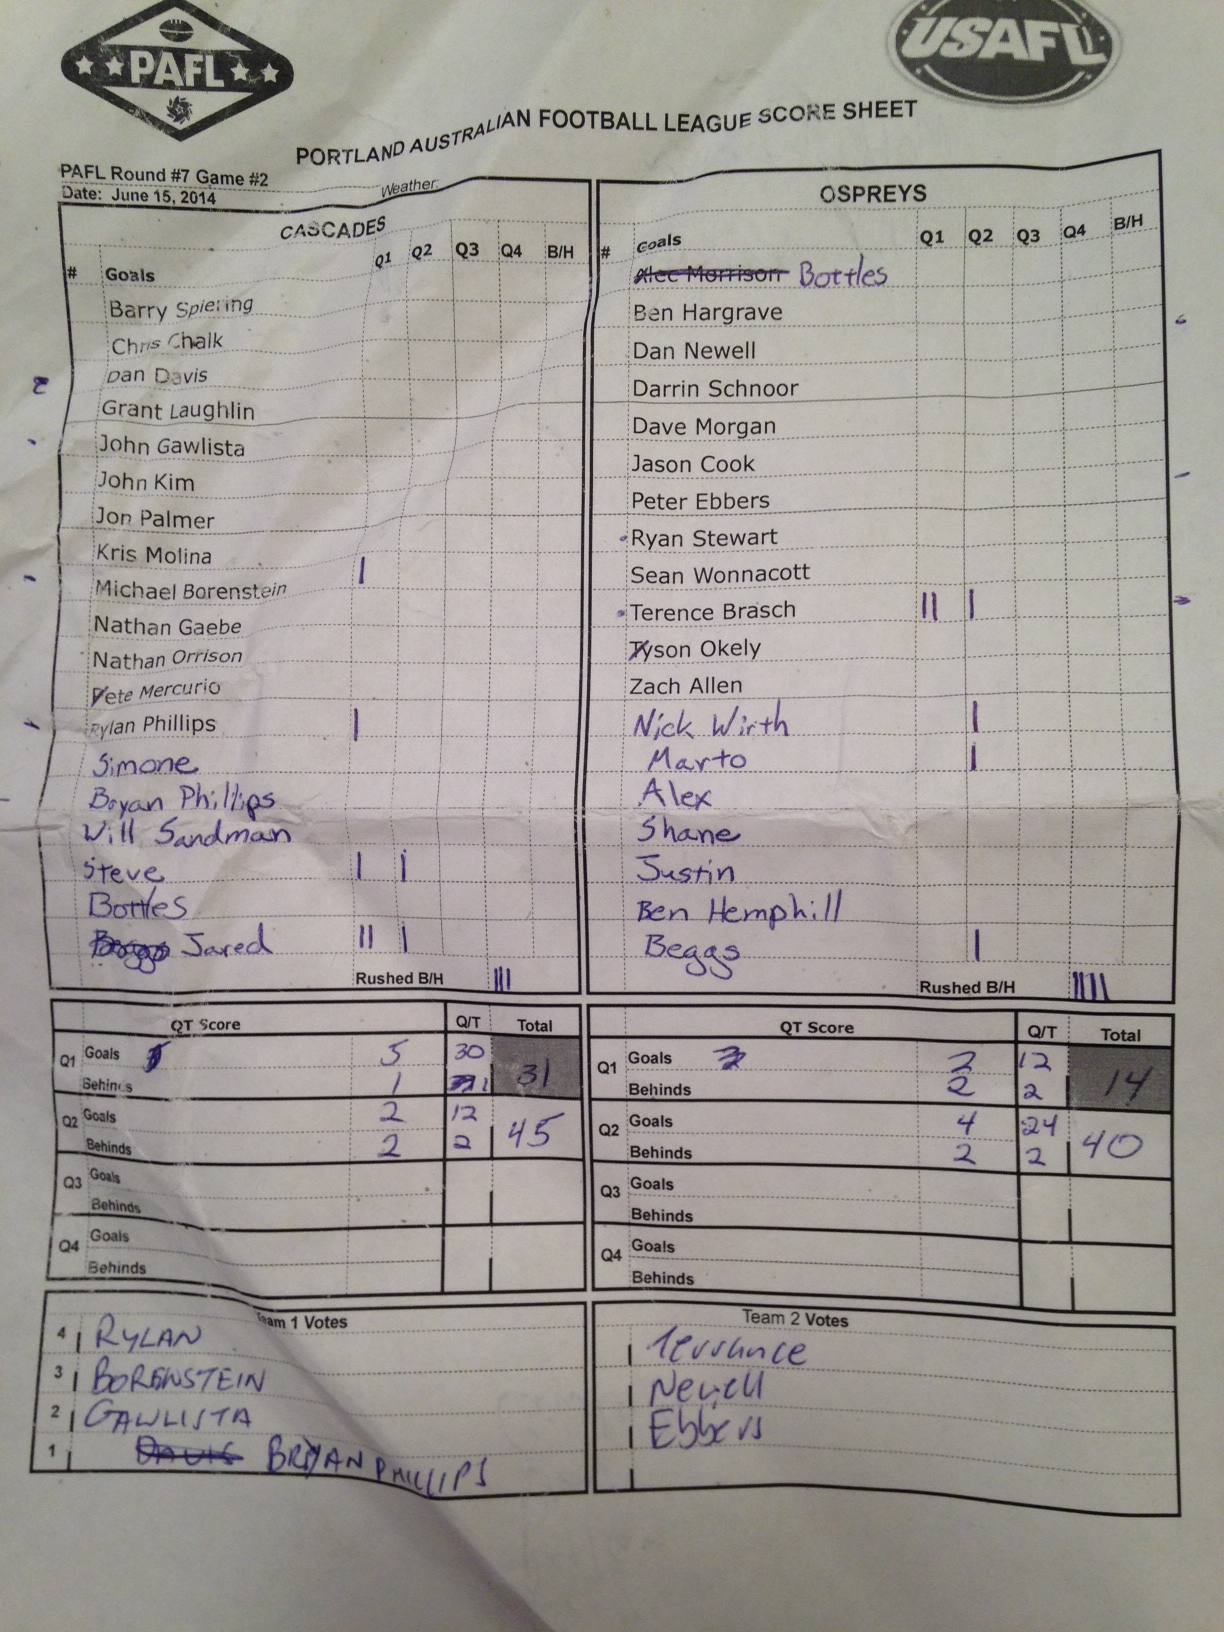 PAFL
USAFL
PORTLAND AUSTRALIAN FOOTBALL LEAGUE SCORE SHEET
PAFL Round #7 Game #2
Date: June 15, 2014
Weather:
CASCADES
# Goals Q1 Q2 Q3 Q4 B/H
Barry Spiering
Chris Chalk
Dan Davis
Grant Laughlin
John Gawlista
John Kim
Jon Palmer
Kris Molina
Michael Borenstein
Nathan Gaebe
Nathan Orrison
Pete Mercurio
Rylan Phillips
Simone
Bryan Phillips
Will Sandman
Steve
Bottles
Beggs Jared
Rushed B/H
OSPREYS
# Goals Q1 Q2 Q3 Q4 B/H
Alec Morrison Bottles
Ben Hargrave
Dan Newell
Darrin Schnoor
Dave Morgan
Jason Cook
Peter Ebbers
Ryan Stewart
Sean Wonnacott
Terence Brasch
Tyson Okely
Zach Allen
Nick Wirth
Marto
Alex
Shane
Justin
Ben Hemphill
Beggs
Rushed B/H
QT Score Q/T Total
Q1 Goals 5 30
Behinds 1 1 31
Q2 Goals 2 12
Behinds 2 2 45
Q3 Goals
Behinds
Q4 Goals
Behinds
QT Score Q/T Total
Q1 Goals 2 12
Behinds 2 2 14
Q2 Goals 4 24
Behinds 2 2 40
Q3 Goals
Behinds
Q4 Goals
Behinds
Team 1 Votes
4 RYLAN
3 BORENSTEIN
2 GAWLISTA
1 DAVIS BRYAN PHILLIPS
Team 2 Votes
Terrance
Newell
Ebbers